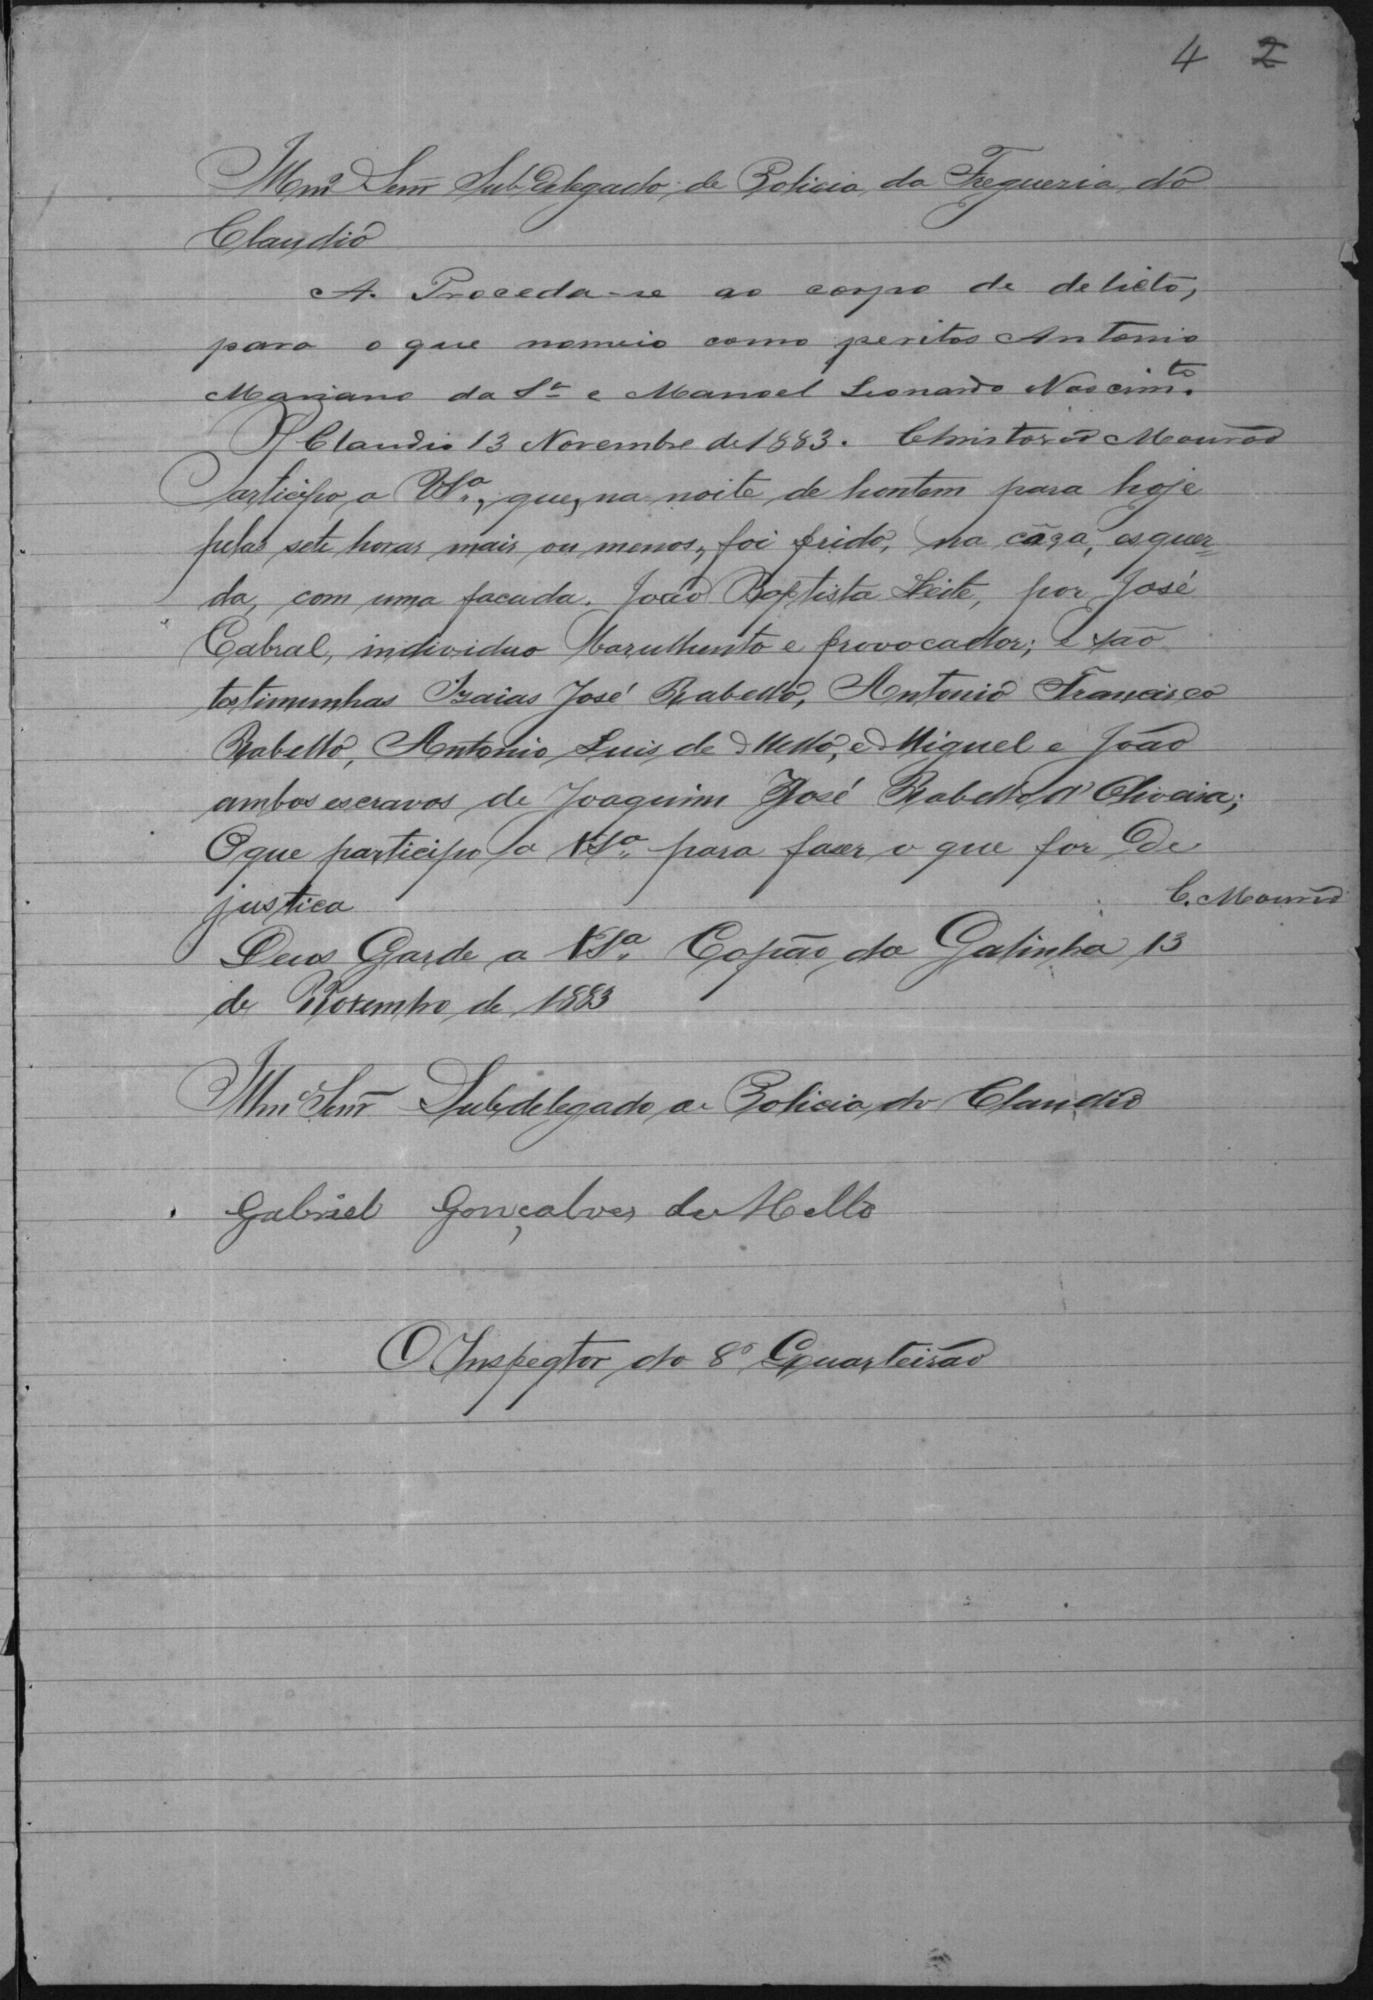 4 2
Illmº Senr̃ Subdelegado de Policia da Fregueria do
Claudio
A. Proceda-se ao corpo de delicto,
para o que nomeio como peritos Antonio
Mariano da Sª e Manoel Leonardo Nascimto.
Claudio 13 Novembro de 1883. Christovão Mourão
Participo a VSª., que, na noite de hontem para hoje
pelas sete horas mais ou menos, foi frido, na cõxa, esquer=
da, com uma facada. João Baptista Leite, por José
Cabral, individuo barulhento e provocador; e são
testimunhas Izaias José Rabello, Antonio Francisco
Rabello, Antonio Luis de Mello, e Miguel e João
ambos escravos de Joaquim José Rabello d'Oliveira;
O que participo a VSª. para faser o que for De
justica
C. Mourão
Deos Garde a VSª. Capão da Galinha 13
de Novembro de 1883
Illmº Senr̃ Subdelegado de Policia do Claudio
Gabriel Gonçalves de Mello
O Inspector do 8º Quarteirão